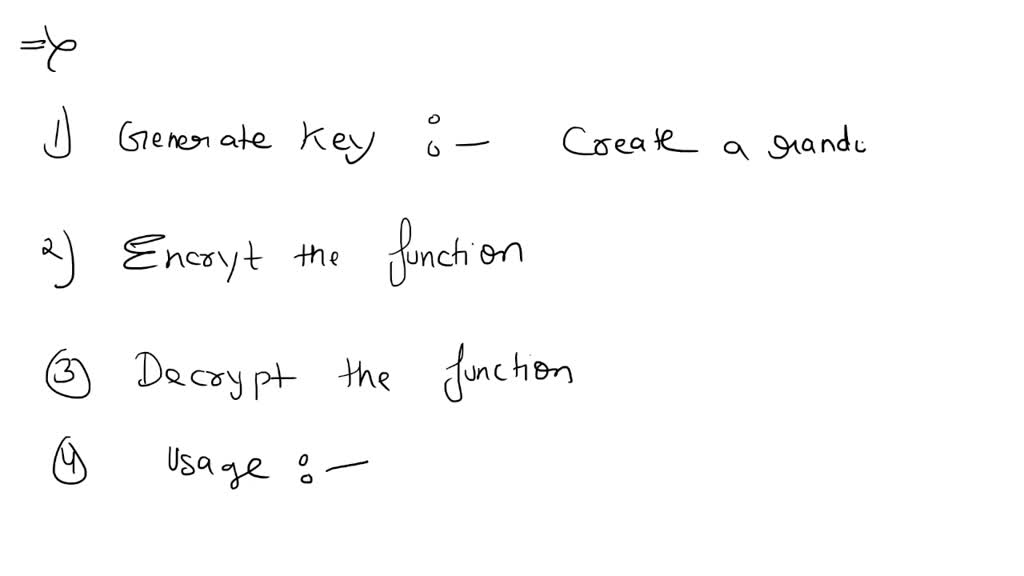 =>
1) Generate Key :- Create a rando
2) Encryt the function
3 Decrypt the function
4 Usage :-